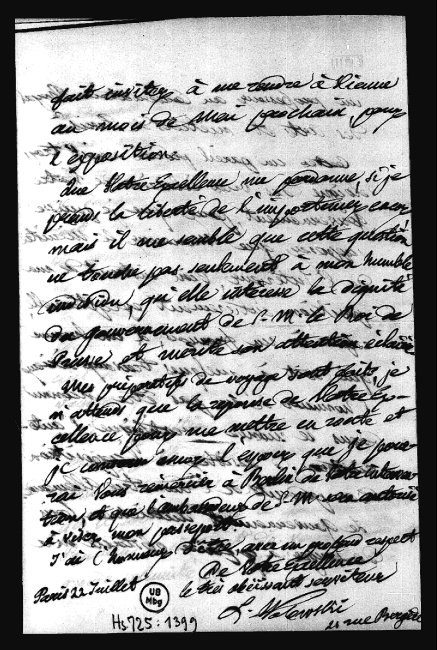 fait inviter à me rendre à Vienne
au mois de Mai prochain pour
l'exposition.
Que Votre Excellence me pardonne, si je
prends la liberté de l'importuner encore,
mais il me semble que cette question
ne touche pas seulement à mon humble
individu, qu'elle intéresse la dignité
du gouvernement de S. M. le Roi de
Prusse et mérite son attention éclairée
Mes préparatifs de voyage sont faits, je
n'attends que la réponse de Votre Ex-
cellence pour me mettre en route et
je l'espoir que je pour-
rai Vous remercier à Berlin de Votre
et que l'ambassadeur de S. M. sera autorisé
à viser mon passeport
J'ai l'honneur d'être, avec un profond respect
De Votre Excellence
le très obéissant serviteur
Paris 22 Juillet.
UB
Mbg
rue
Hs 725: 1399